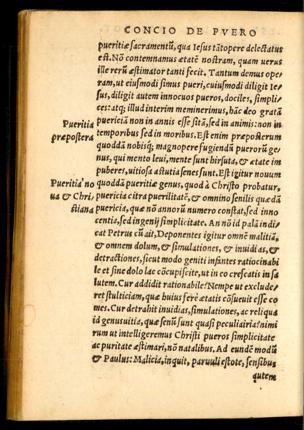 CONCIO DE PVERO
pueritiæ sacramentũ, qua Iesus tãtopere delectatus
est. Nõ contemnamus ætatẽ nostram, quam uerus
ille rerũ æstimator tanti fecit. Tantum demus ope-
ram, ut eiusmodi simus pueri, cuiusmodi diligit Ie-
sus, diligit autem innocuos pueros, dociles, simpli-
ces: atq; illud interim meminerimus, hãc deo gratã
puericiã non in annis esse sitã, sed in animis: non in
Pueritia
præpostera
temporibus sed in moribus. Est enim præposterum
quoddã nobisq; magnopere fugiendũ puerorũ ge-
nus, qui mento leui, mente sunt hirsuta, & ætate im
puberes, uitiosa astutia senes sunt. Est igitur nouum
Pueritia no
ua & Chri
stiana
quoddã pueritiæ genus, quod à Christo probatur,
puericia citra puerilitatẽ, & omnino senilis quædã
puericia, quæ nõ annorũ numero constat, sed inno
centia, sed ingenij simplicitate. An nõ id palã indi-
cat Petrus cũ ait, Deponentes igitur omnẽ malitiã,
& omnem dolum, & simulationes, & inuidias, &
detractiones, sicut modo geniti infantes rationcinabi
le et sine dolo lac cõcupiscite, ut in eo crescatis in sa
lutem. Cur addidit rationabile? Nempe ut exclude/
ret stulticiam, quæ huius ferè ætatis cõsueuit esse co
mes. Cur detrahit inuidias, simulationes, ac reliqua
id genus uitia, quæ senũ sunt quasi peculiaria? nimi
rum ut intelligeremus Christi pueros simplicitate
ac puritate æstimari, nõ natalibus. Ad eundẽ modũ
& Paulus: Malicia, inquit, paruuli estote, sensibus
autem